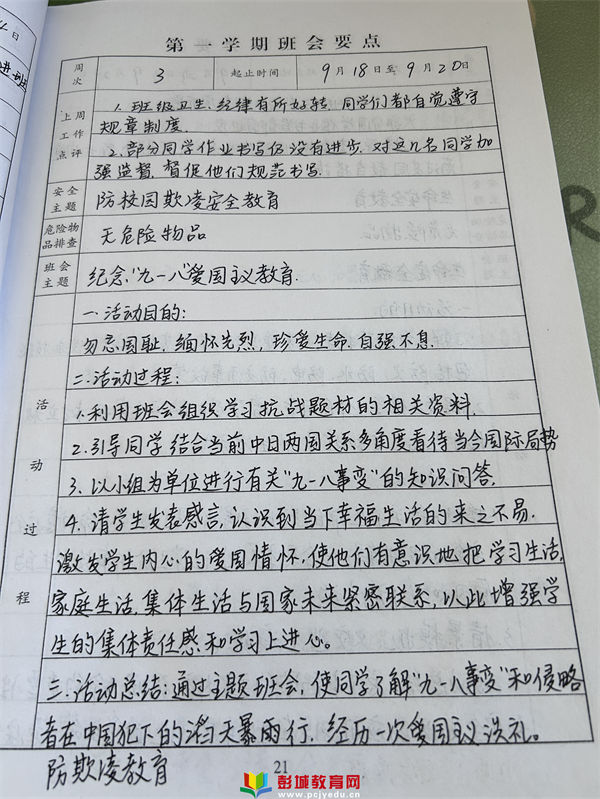 第一学期班会要点
周次 3 起止时间 9月18日至9月20日
上周工作点评
1. 班级卫生、纪律有所好转, 同学们都自觉遵守
规章制度.
2. 部分同学作业书写仍没有进步. 对这几名同学加
强监督, 督促他们规范书写.
安全主题 防校园欺凌安全教育
危险物品排查 无危险物品
班会主题 纪念“九一八”爱国主义教育.
活动过程
一.活动目的:
勿忘国耻, 缅怀先烈, 珍爱生命, 自强不息.
二.活动过程:
1.利用班会组织学习抗战题材的相关资料.
2.引导同学结合当前中日两国关系多角度看待当今国际局势
3. 以小组为单位进行有关“九一八事变”的知识问答.
4. 请学生发表感言, 认识到当下幸福生活的来之不易.
激发学生内心的爱国情怀, 使他们有意识地把学习生活,
家庭生活, 集体生活与国家未来紧密联系, 以此增强学
生的集体责任感和学习上进心。
三.活动总结:通过主题班会, 使同学了解“九一八事变”和侵略
者在中国犯下的滔天暴雨行. 经历一次爱国主义洗礼。
防欺凌教育
21
彭城教育网
www.pcjyedu.cn